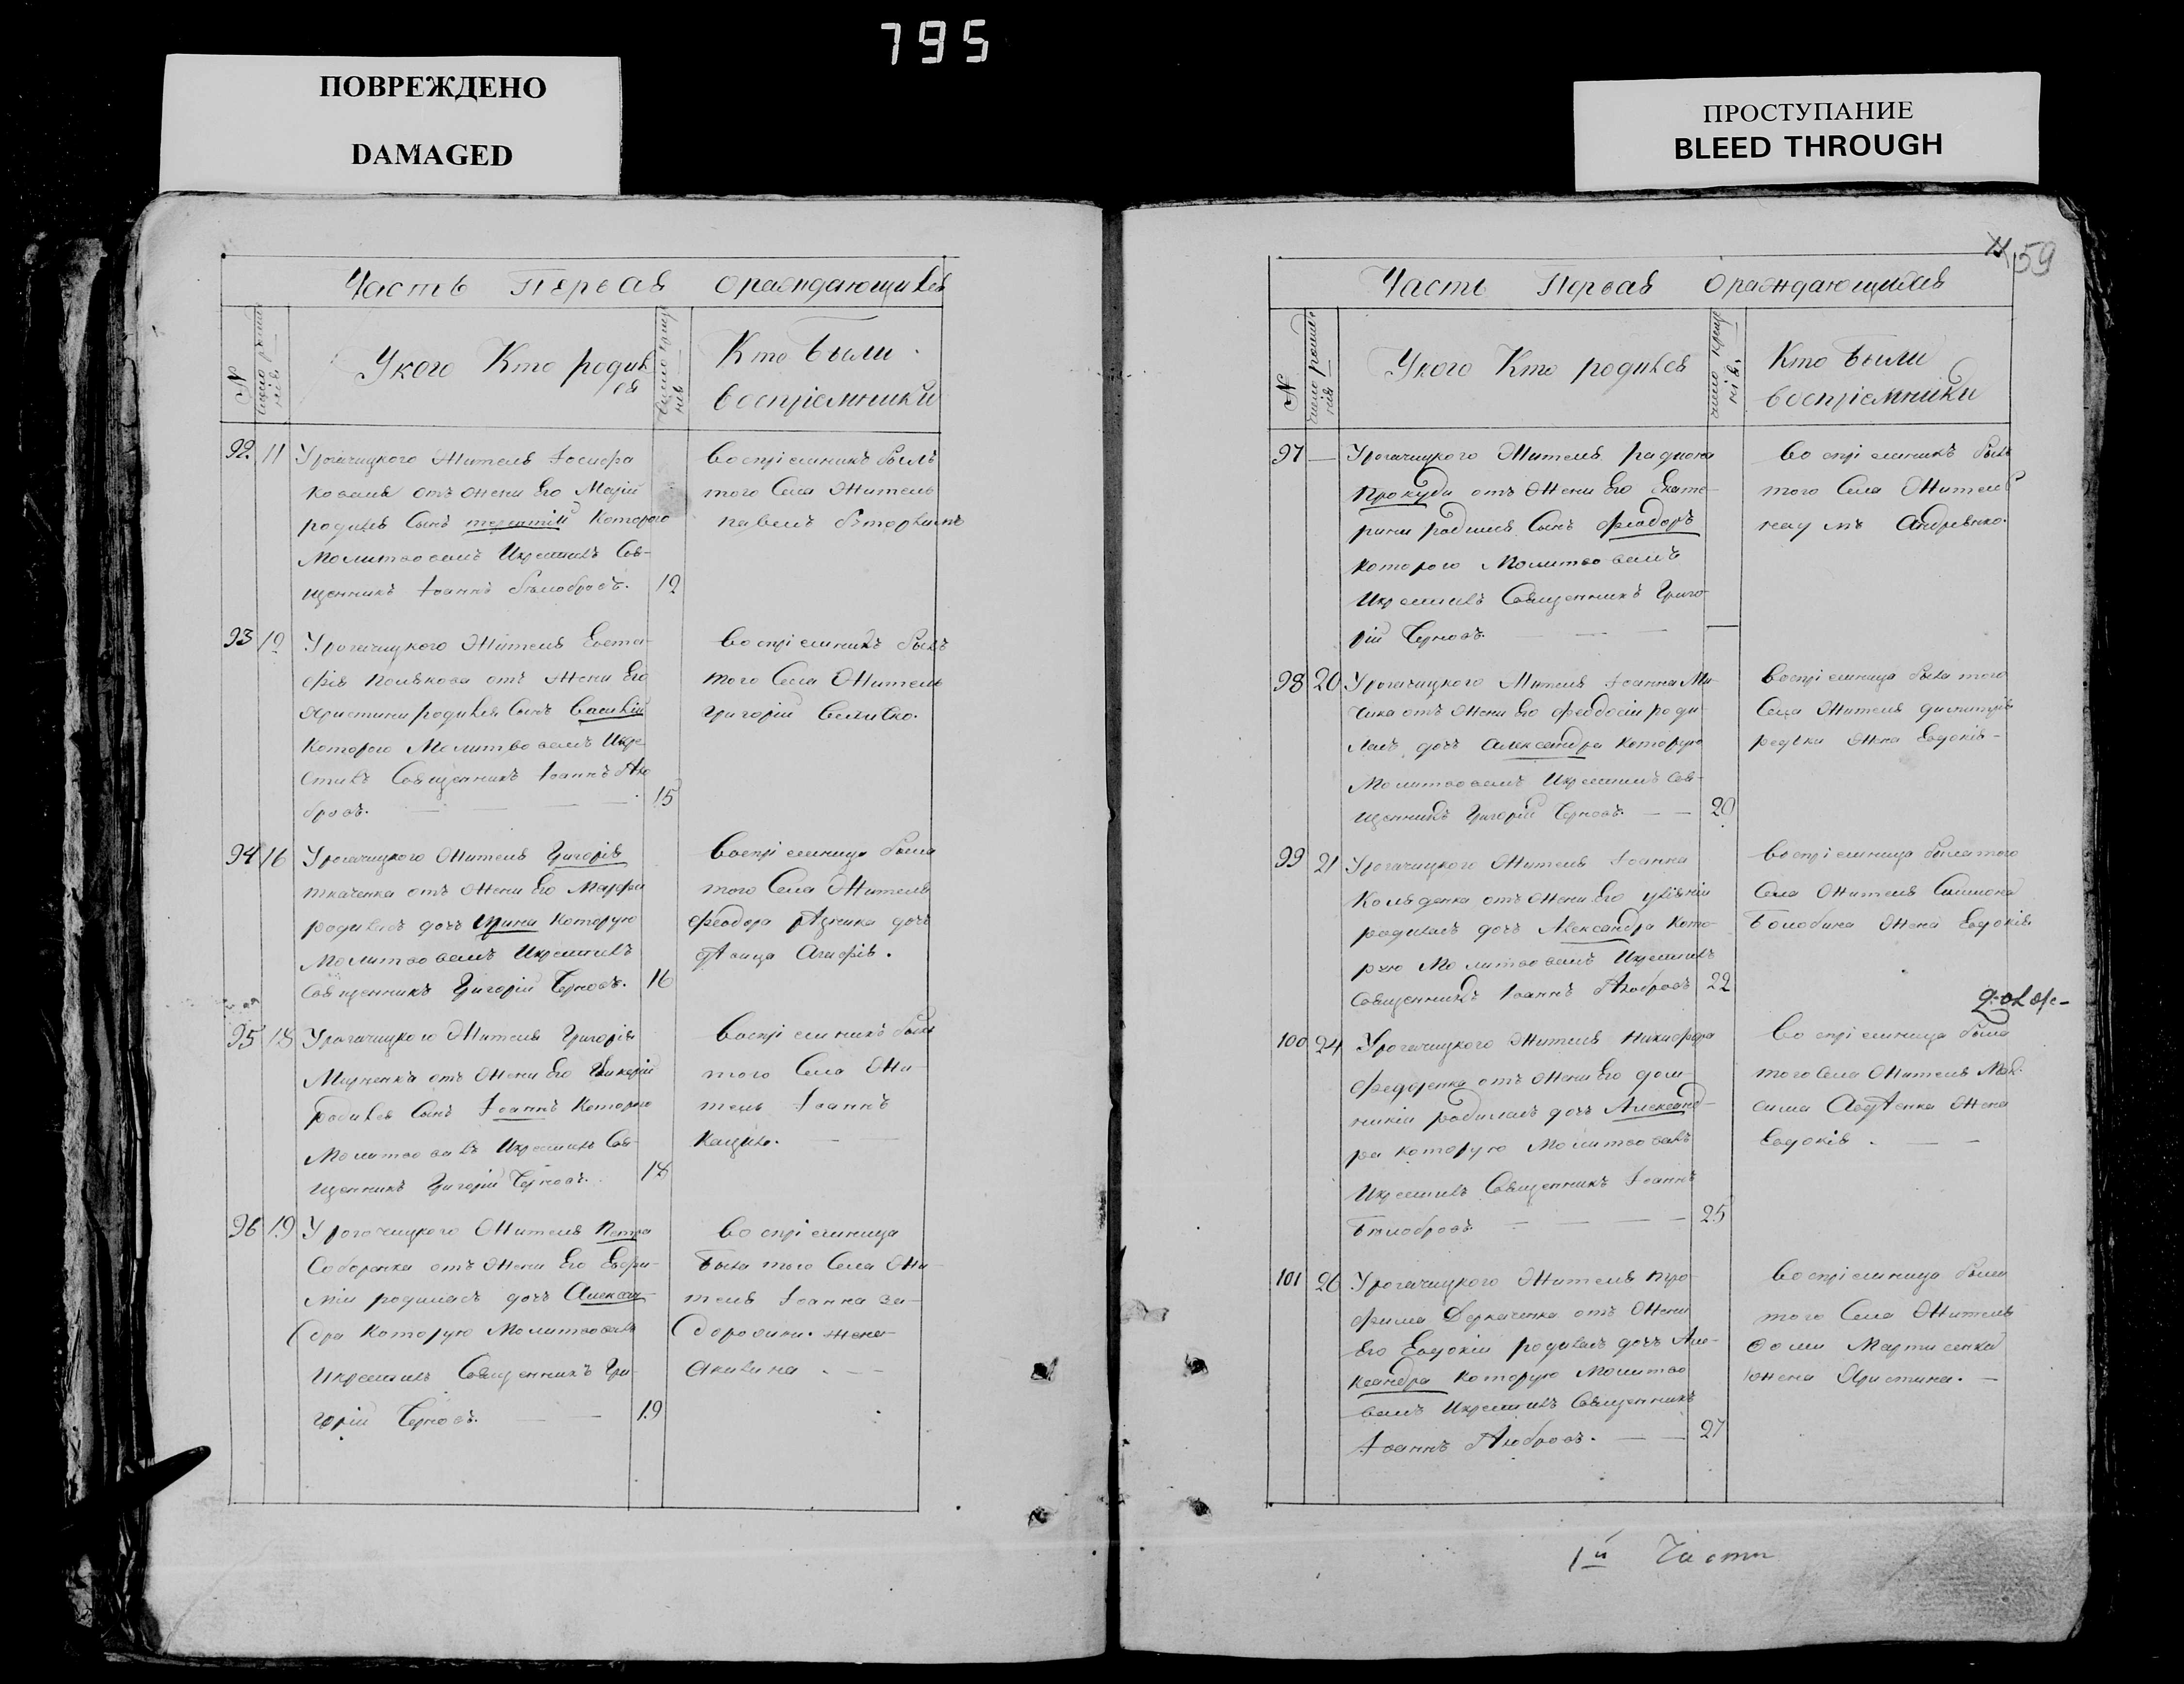 795
ПОВРЕЖДЕНО
DAMAGED
ПРОСТУПАНИЕ
BLEED THROUGH
Часть Первая ораждающихся
N
Укого Кто родив
ся
Кто были
воспріемники
92. 11 Урогачицкого Жителя Іосифа
Коваля отъ жени Его Маріи
родився Сынъ Которого
Молитвовалъ Икрестивъ Свя-
щенникъ Іоаннъ Бѣлобровъ. 12
воспріемникъ былъ
того Села Житель
павелъ
93 12 Урогачицкого Жителя Евста-
фія полякова отъ жени Его
Христини родився Сынъ Василій
Которого Молитвовалъ Икре
стивъ Священникъ Іоаннъ
бровъ. 15
воспріемникъ былъ
того Села Житель
Григорій
94 16 Урогачицкого Жителя Григорія
ткаченка отъ жени Его Марфи
родилась дочъ Ирина Которую
Молитвовалъ Икрестивъ
Священникъ Григорій Черновъ. 16
воспріемница была
того Села Жителя
Феодора рѣзника дочъ
дѣвица Агафія.
95 18 Урогачицкого Жителя Григорія
отъ жени Его Гликеріи
родився Сынъ Іоаннъ Которого
Молитвовавъ Икрестивъ Свя-
щенникъ Григорій Черновъ. 18
воспріемникъ былъ
того Села Жи-
тель Іоаннъ
Кацика.
96 19 Урогачицкого Жителя Петра
Соборенка отъ жени Его Евфи-
міи родилась дочъ Алексан-
дра Которую Молитвовавъ
Икрестивъ Священникъ Гри-
горій Черновъ. 19
воспріемница
Была того Села Жи-
теля Іоанна За-
дорожни. жена
Акилина
59
Часть Первая ораждающихся
N
Укого Кто родився
Кто были
воспріемники
97 — Урогачицкого Жителя радиона
Прокуди отъ жени Его Екате-
рини родился Сынъ Феодоръ
которого Молитвовалъ
Икрестивъ Священникъ Григо-
рій Черновъ.
воспріемникъ былъ
того Села Житель
Андреянко.
98 20 Урогачицкого Жителя Іоанна Ми-
отъ жени Его Феодосіи роди-
лась дочъ Александра Которую
Молитвовалъ Икрестилъ Свя-
щенникъ Григорій Черновъ. 20
воспріемница была того
Села Жителя димитрія
редьки жена Евдокія
99 21 Урогачицкого Жителя Іоанна
Коляденка отъ жени Его уліяніи
родилась дочъ Александра Кото-
рую Молитвовалъ Икрестивъ
Священникъ Іоаннъ 22
воспріемница была того
Села Жителя Симиона
Болобина жена Евдокія
100 24 Урогачицкого Жителя Никифора
Федоренка отъ жени Его дом-
никіи родилась дочъ Александ-
ра которую Молитвовавъ
Икрестивъ Священникъ Іоаннъ
Бѣлобровъ 25
воспріемница была
того Села Жителя Мак-
сима Авдѣенка жена
Евдокія.
101 26 Урогачицкого Жителя тро-
фима Деркаченка отъ жени
Его Евдокіи родилась дочъ Але-
ксандра Которую Молитво
валъ Икрестивъ Священникъ
Іоаннъ 27
воспріемница была
того Села Жителя
Фоми Мартиенка
жена Христина.
1й Части